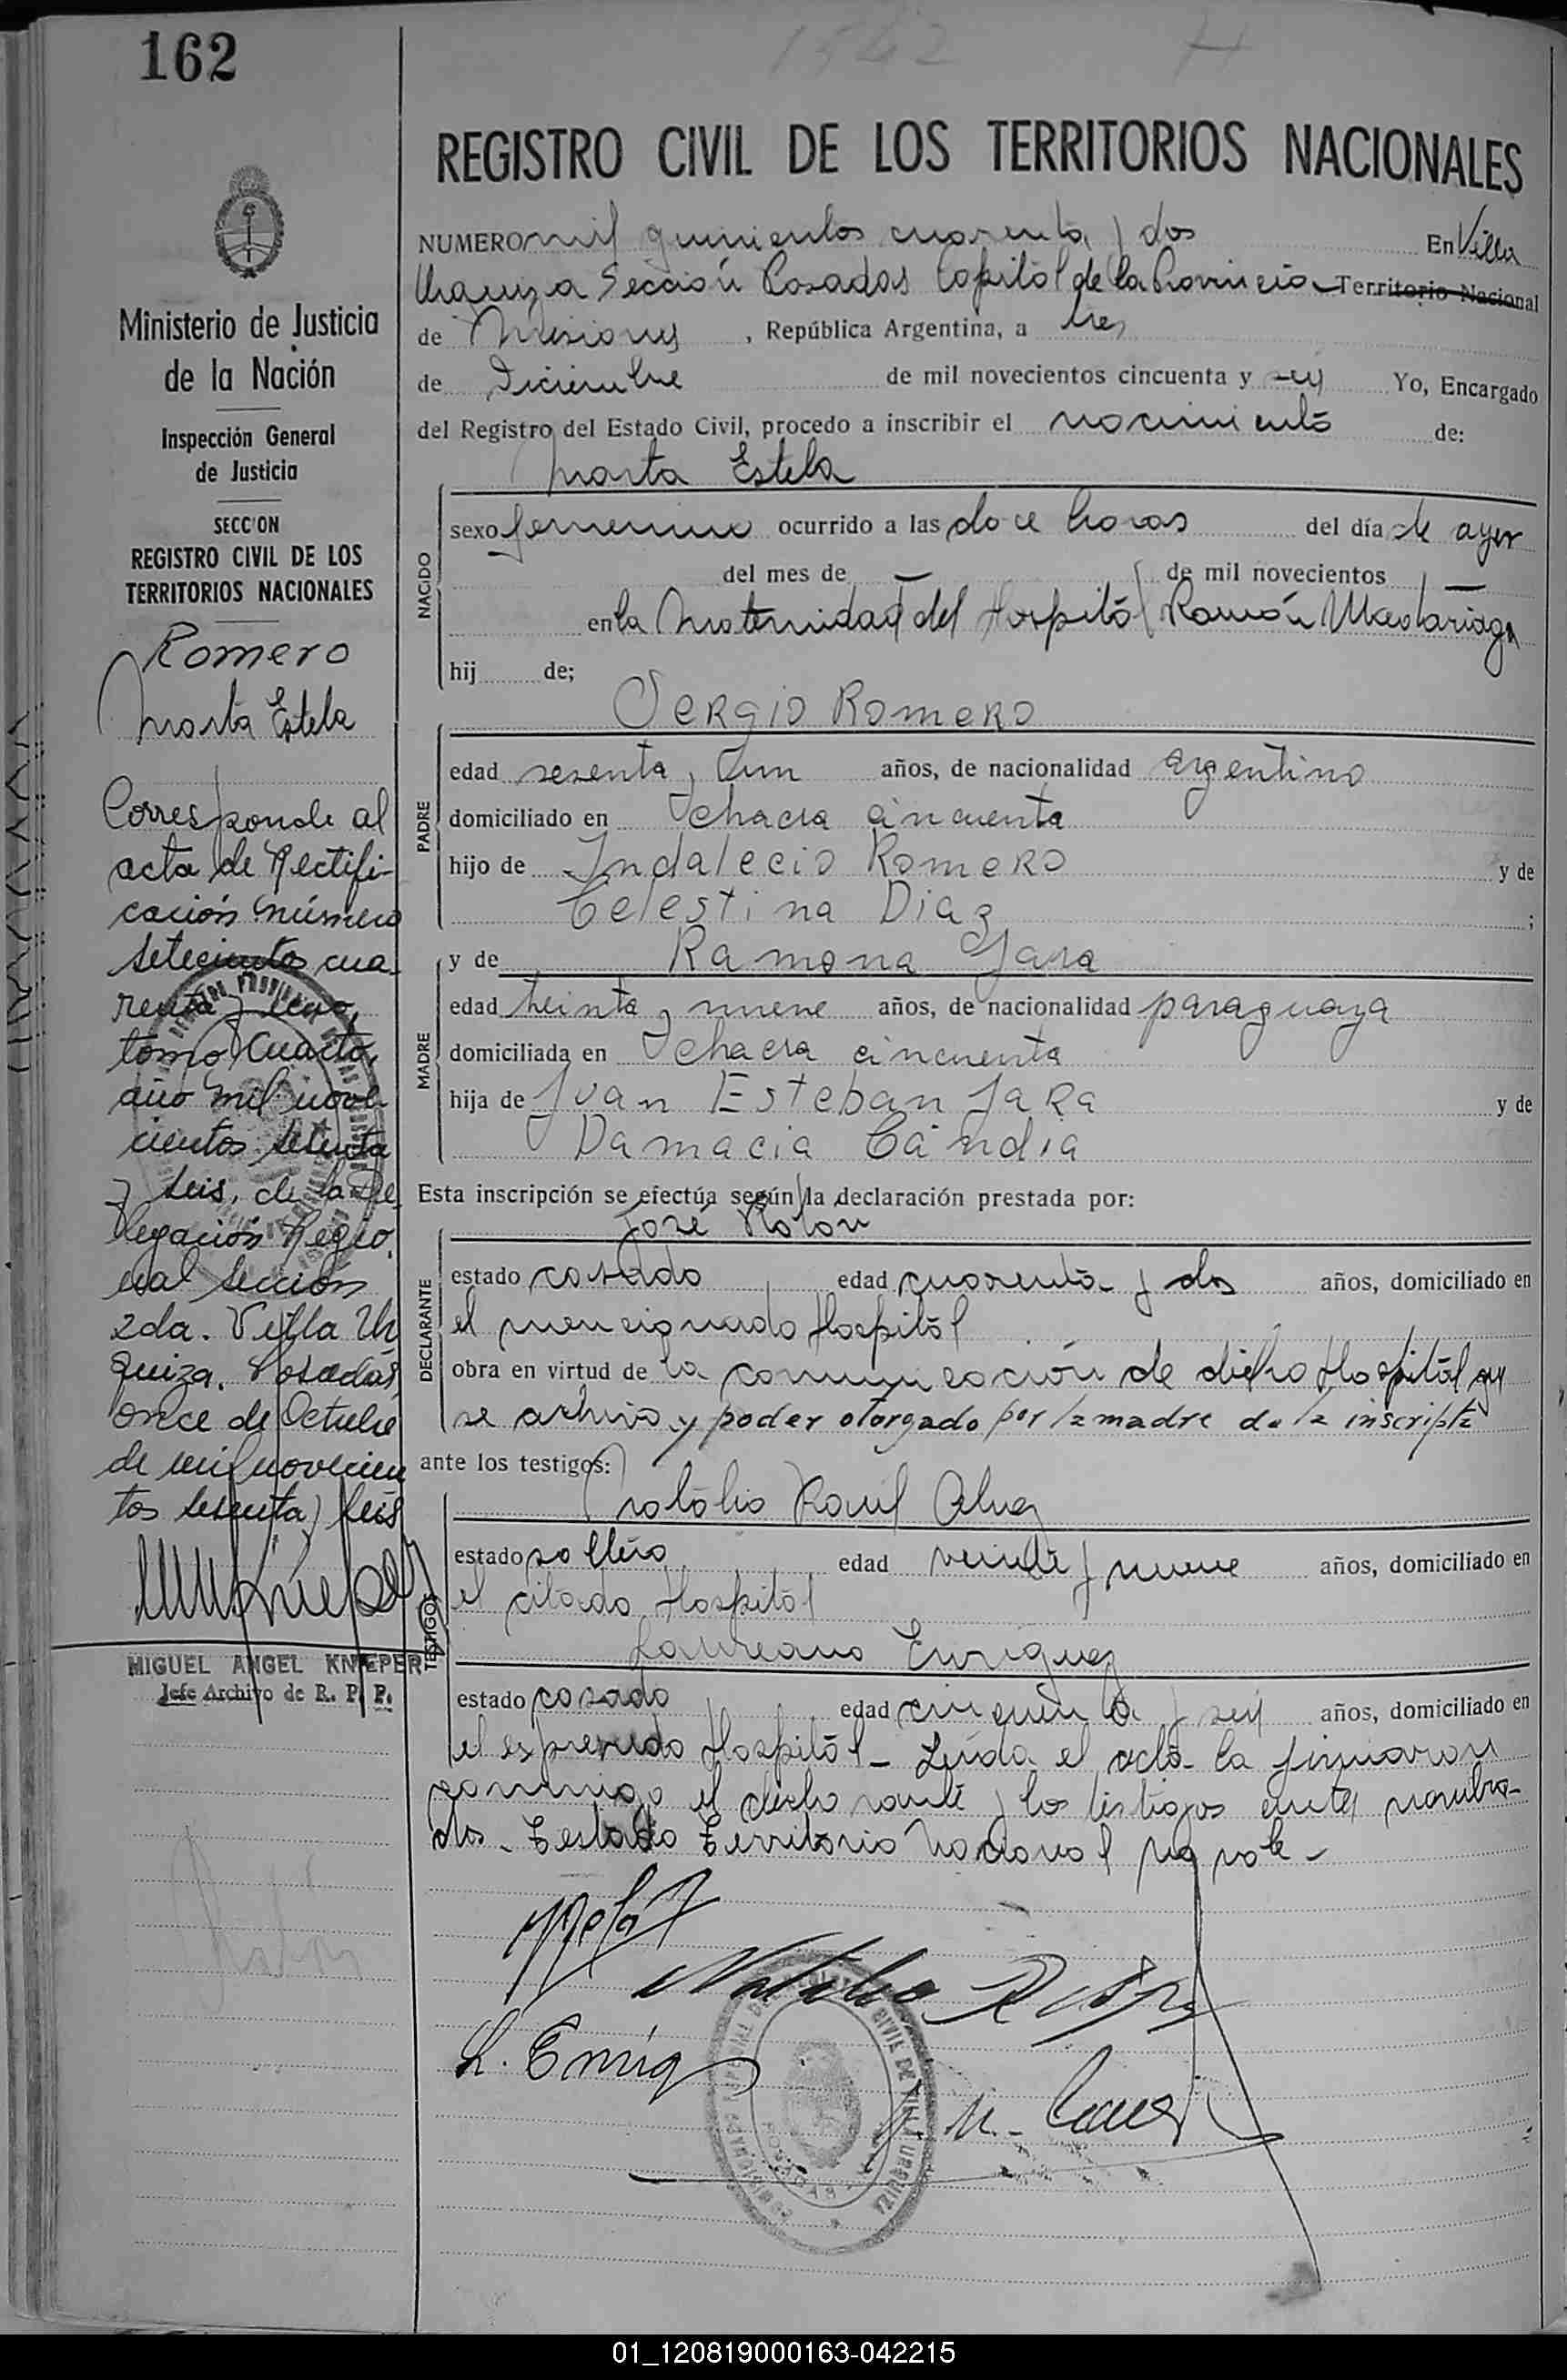 162
1542
REGISTRO CIVIL DE LOS TERRITORIOS NACIONALES
NUMERO mil quinientos cuarenta y dos En Villa
Urquiza Sección Posadas Capital de la Provincia Territorio Nacional
de Misiones, República Argentina, a tres
de Diciembre de mil novecientos cincuenta y seis Yo, Encargado
del Registro del Estado Civil, procedo a inscribir el nacimiento de:
Marta Estela
NACIDO
sexo femenino ocurrido a las doce horas del día de ayer
del mes de — de mil novecientos —
en la Maternidad del Hospital Ramón Madariaga
hij de;
Sergio Romero
PADRE
edad sesenta y un años, de nacionalidad argentino
domiciliado en chacra cincuenta
hijo de Indalecio Romero y de
Celestina Diaz ;
y de Ramona Jara
MADRE
edad treinta y nueve años, de nacionalidad paraguaya
domiciliada en chacra cincuenta
hija de Juan Esteban Jara y de
Damacia Candia
Esta inscripción se efectúa según la declaración prestada por:
José Rolon
DECLARANTE
estado casado edad cuarenta y dos años, domiciliado en
el mencionado Hospital
obra en virtud de la comunicación de dicho Hospital que
se archiva y poder otorgado por la madre de la inscripta
ante los testigos:
Natalio Raul
TESTIGOS
estado soltero edad veinte y nueve años, domiciliado en
el citado Hospital
Laureano Enriquez
estado casado edad cincuenta y seis años, domiciliado en
el expresado Hospital - Leída el acta la firmaron
conmigo el declarante y los testigos antes nombra-
dos. Testado Territorio Nacional no vale -
L. Enriq
Ministerio de Justicia
de la Nación
Inspección General
de Justicia
SECCION
REGISTRO CIVIL DE LOS
TERRITORIOS NACIONALES
Romero
Marta Estela
Corresponde al
acta de Rectifi-
cación número
setecientos cua-
renta y uno,
tomo Cuarto,
año mil nove-
cientos sesenta
y seis, de la De-
legación Regio-
nal Sección
2da. Villa Ur
quiza. Posadas,
once de Octubre
de mil novecien
tos sesenta y seis
MIGUEL ANGEL KNIEPER
Jefe Archivo de R. P. P.
01_120819000163-042215